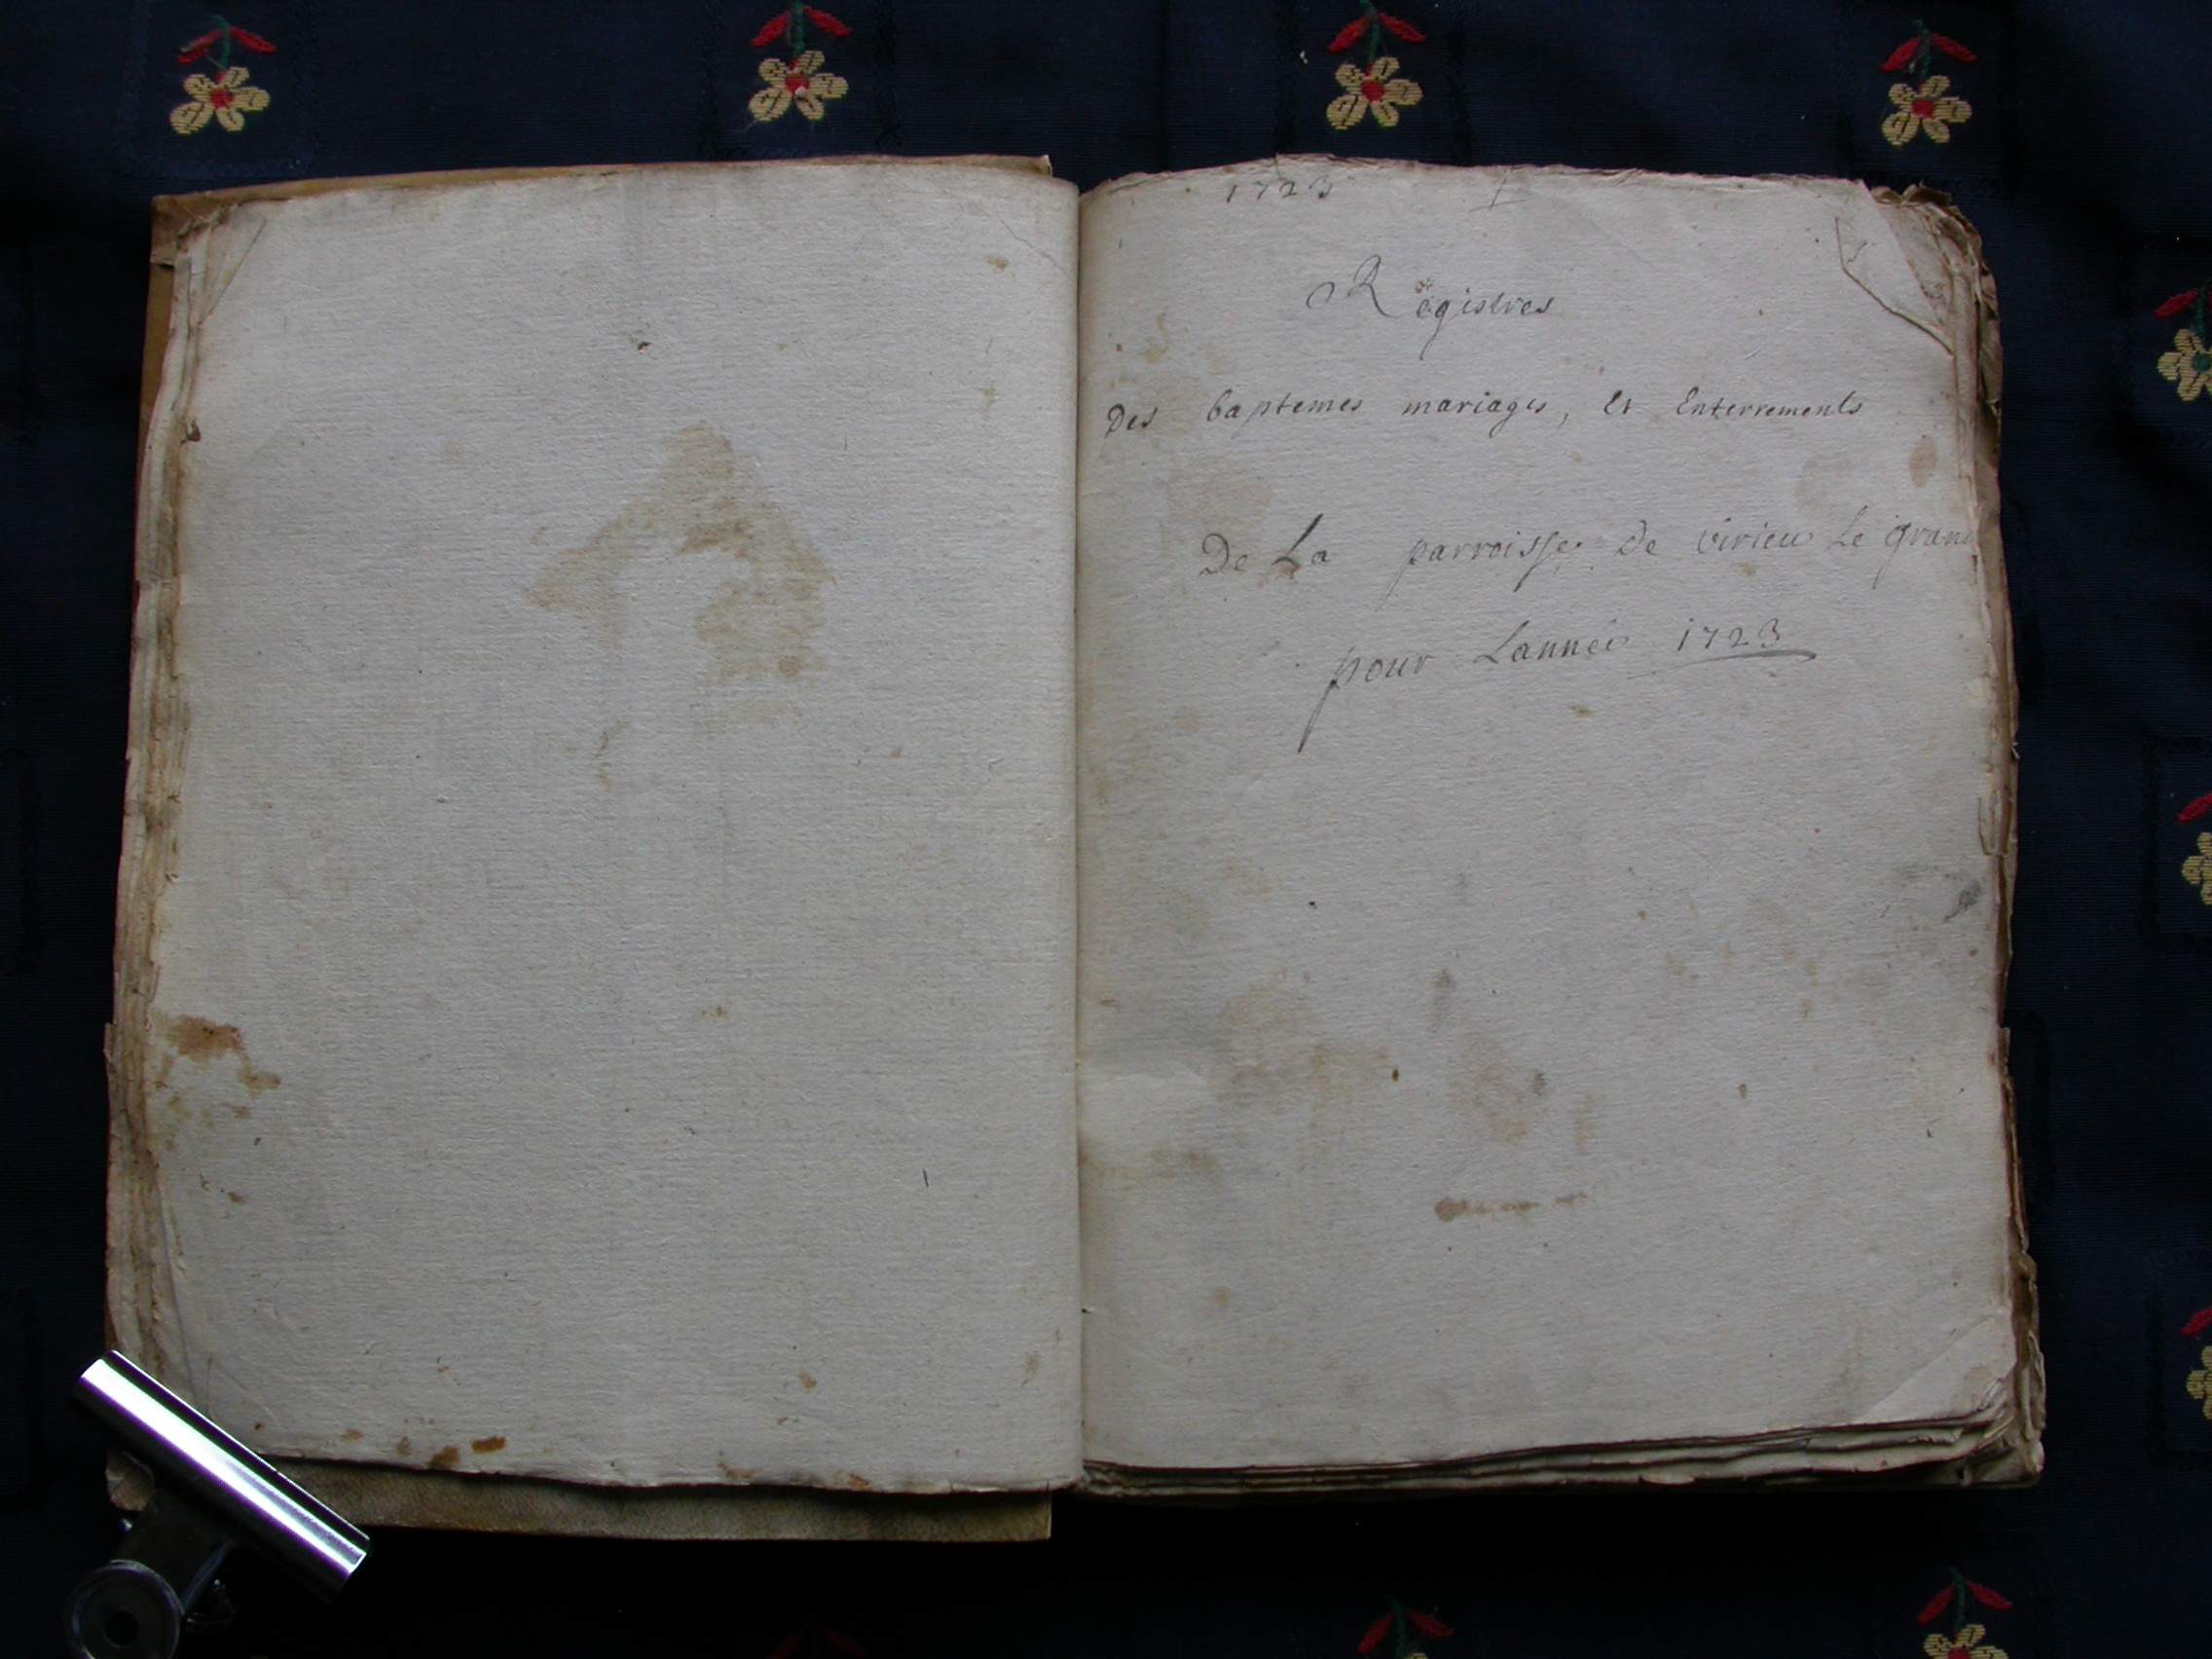 1723
Registres
Des baptemes mariages, Et Enterrements
De La parroisse De virieu Le grand
pour Lannée 1723